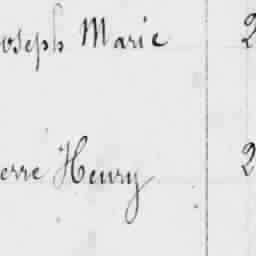 oseph Marie 2
erre Henry 2